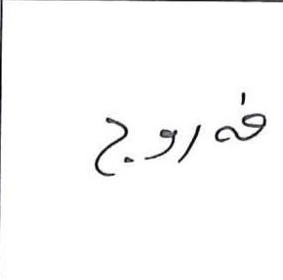 فەروج